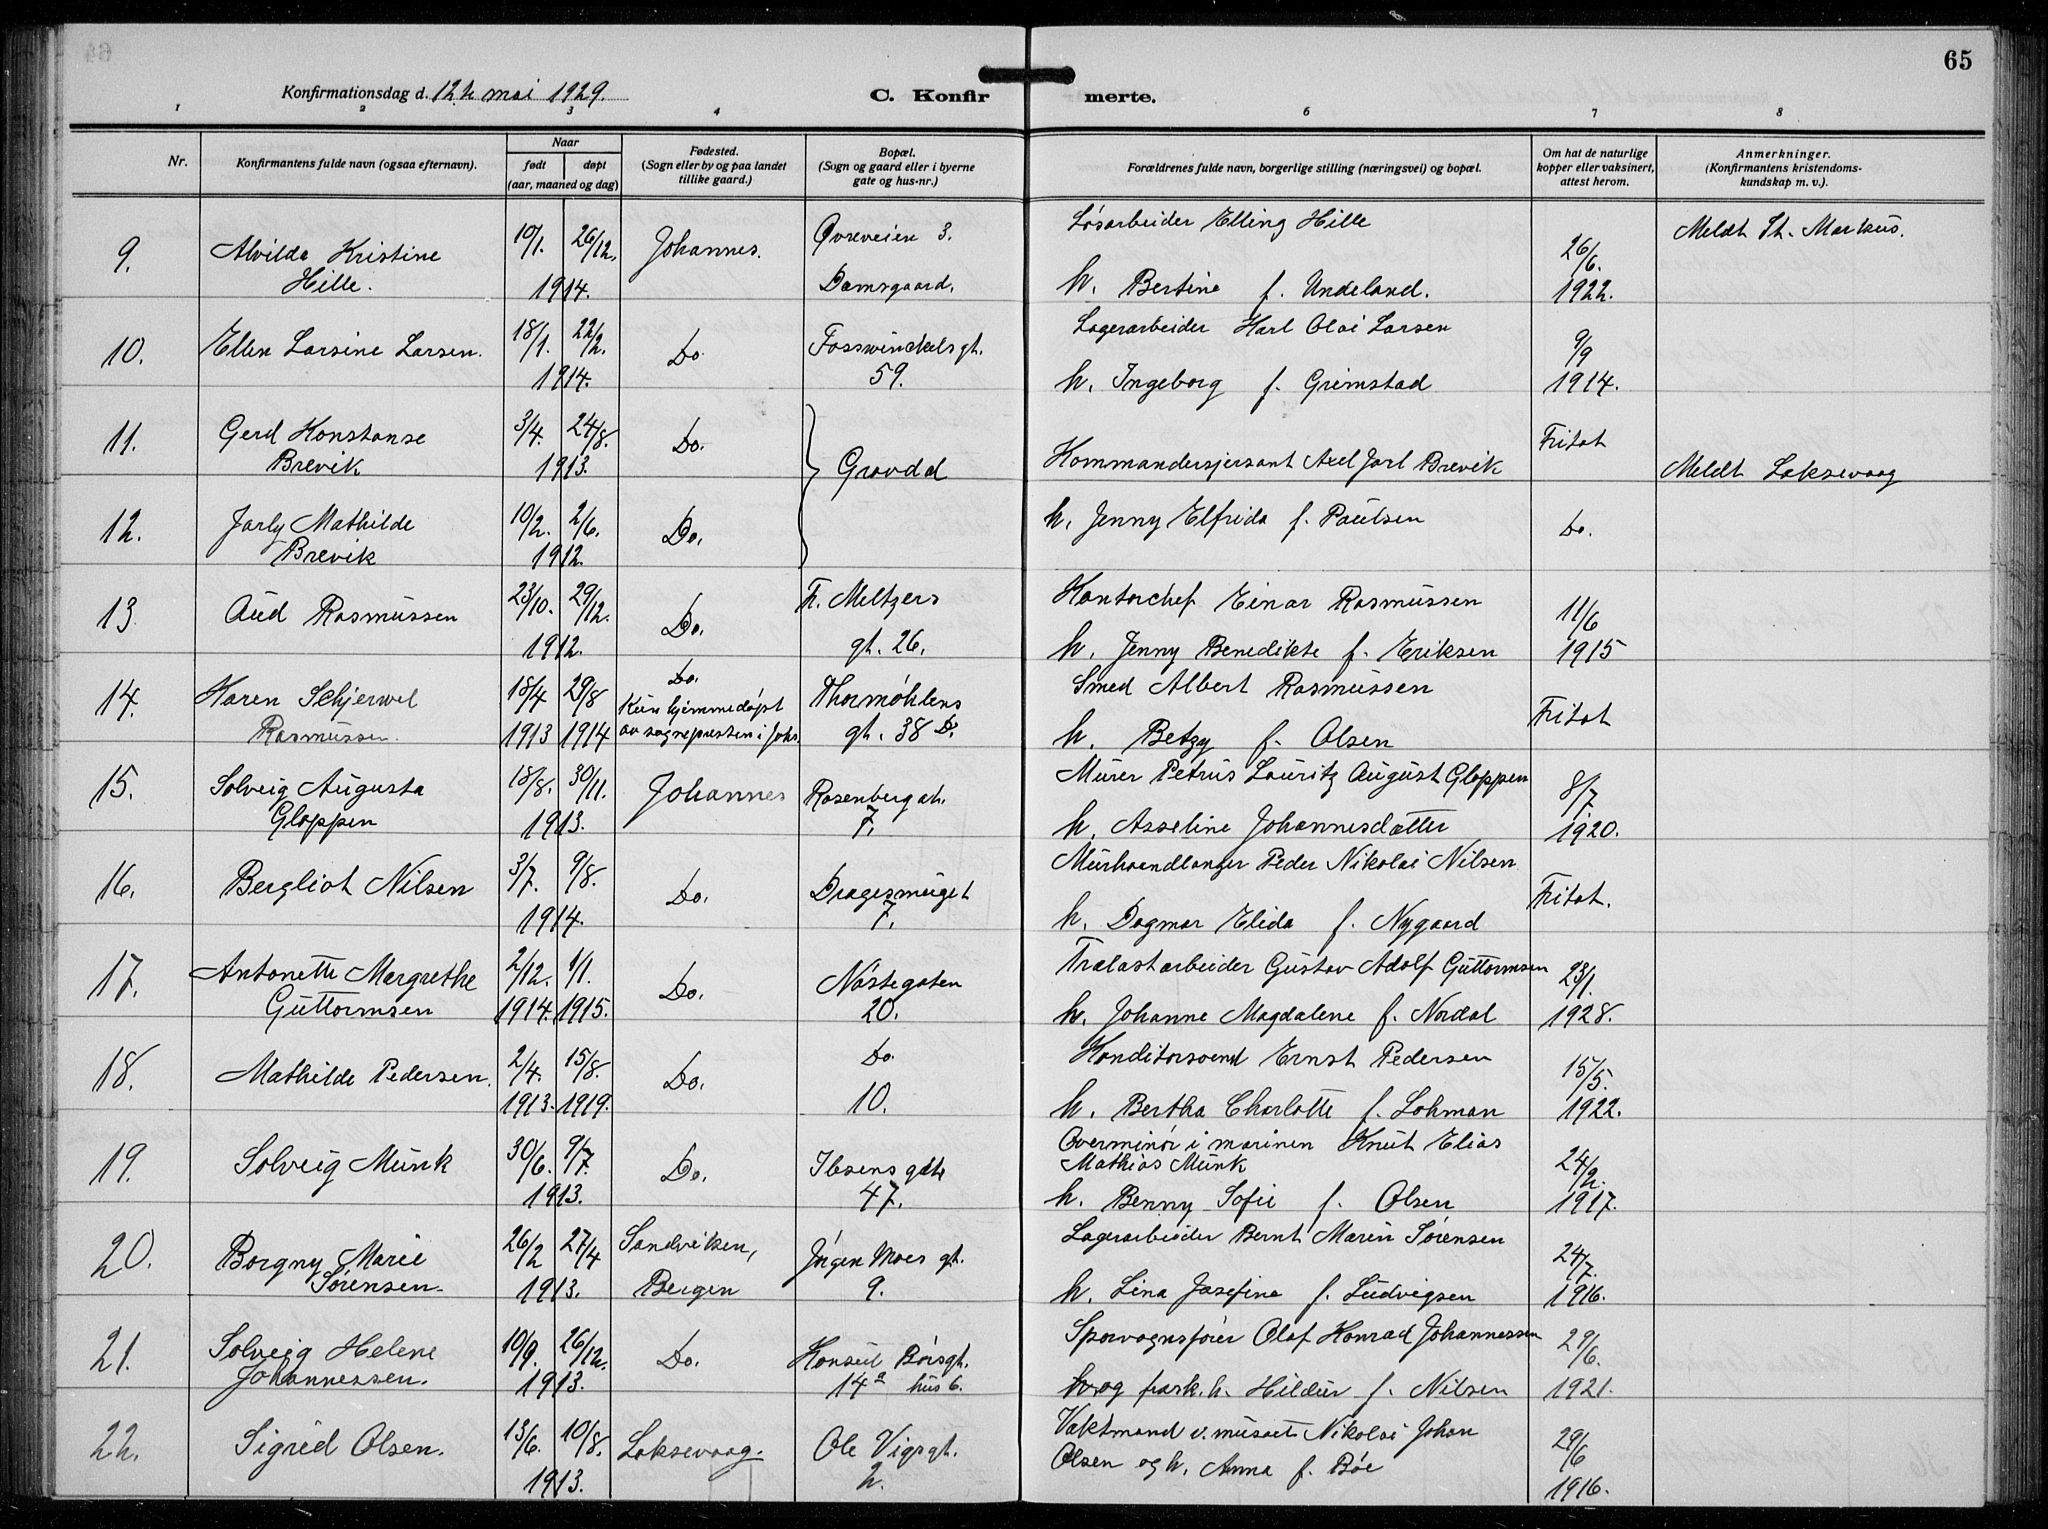 65
Konfirmationsdag d. 12te mai 1929.
C. Konfirmerte.
1 2 3 4 6 7 8
Nr.
Konfirmantens fulde navn (ogsaa efternavn).
Naar
født døpt
(aar, maaned og dag)
Fødested.
(Sogn eller by og paa landet
tillike gaard.)
Bopæl.
(Sogn og gaard eller i byerne
gate og hus-nr.)
Forældrenes fulde navn, borgerlige stilling (næringsvei) og bopæl.
Om hat de naturlige
kopper eller vaksinert,
attest herom.
Anmerkninger.
(Konfirmantens kristendoms-
kundskap m. v.).
9. Alvilde Kristine 10/1. 26/12. Johannes. Øvreveien 3. Løsarbeider Elling Hille 26/6. Meldt St. Markus.
Hille. 1914. Damsgaard. h. Bertine f. Undeland. 1922.
10. Ellen Larsine Larsen. 18/1. 22/2. Do Fosswinckels gt. Lagerarbeider Karl Olai Larsen 9/9
1914. 59. h. Ingeborg f. Grimstad 1914.
11. Gerd Konstanse 3/4. 24/8. Do. Gravdal Kommandersjersant Axel Jarl Brevik Fritat Meldt Laksevaag
Brevik 1913.
12. Jarly Mathilde 10/2. 2/6. Do. h. Jenny Elfrida f. Paulsen Do.
Brevik 1912.
13. Aud Rasmussen 23/10. 29/12. Do. Fr. Meltzers Kontorchef Einar Rasmussen 11/6
1912. gt. 26. h. Jenny Benedikte f. Eriksen 1915
14. Karen Schjerwel 18/4 29/8 Do. Thormøhlens Smed Albert Rasmussen Fritat
Kun hjemmedøpt
Rasmussen. 1913 1914 av sognepresten i Johs. gt. 38 D. h. Betzy f. Olsen
15. Solveig Augusta 18/8. 30/11. Johannes Rosenberg gt. Murer Petrus Lauritz August Gloppen 8/7
Gloppen 1913. 7. h. Asseline Johannesdatter 1920.
16. Bergliot Nilsen 3/7. 9/8. Do. Dragesmuget Murhaandlanger Peder Nikolai Nilsen Fritat.
1914. 7. h. Dagmar Elida f. Nygaard
17. Antonette Margrethe 2/12. 1/1. Do. Nøstegaten Trælastarbeider Gustav Adolf Guttormsen 23/1.
Guttormsen 1914. 1915. 20. h. Johanne Magdalene f. Nordal 1928.
18. Mathilde Pedersen. 2/4. 15/8. Do. Do Konditorsvend Ernst Pedersen 15/5.
1913. 1919. 10. h. Bertha Charlotte f. Lohman 1922.
19. Solveig Munk 30/6. 9/7. Do. Ibsens gate Overminør i marinen Knut Elias
Mathias Munk 24/2.
1913. 47. h. Benny Sofie f. Olsen 1917.
20. Borgny Marie 26/2 27/4 Sandviken, Jørgen Moes gt. Lagerarbeider Bernt Marin Sørensen 24/7.
Sørensen. 1913. Bergen 9. h. Lina Josefine f. Ludvigsen 1916.
21. Solveig Helene 10/9. 26/12. Do. Konsul Børsgt. Sporvognsfører Olaf Konrad Johannessen 29/6.
Johannessen. 1913. 14a hus 6. og frask. h. Hildur f. Nilsen 1921.
22. Sigrid Olsen. 13/6. 10/8. Laksevaag. Ole Vigsgt. Vaktmand v. museet Nikolai Johan 29/6
1913. 2. Olsen og h. Anna f. Bøe 1916.